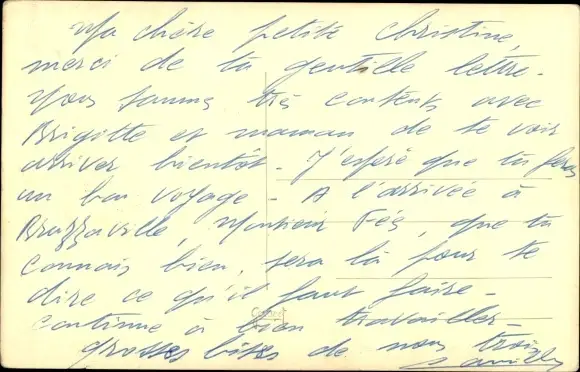 Ma chère petite Christine,
merci de ta gentille lettre.
Nous sommes très contents avec
Brigitte et maman de te voir
arriver bientôt - J'espère que tu feras
un bon voyage - A l'arrivée à
Brazzaville, Monsieur Fés, que tu
connais bien, sera là pour te
dire ce qu'il faut faire -
continue à bien travailler -
grosses bises de nous trois